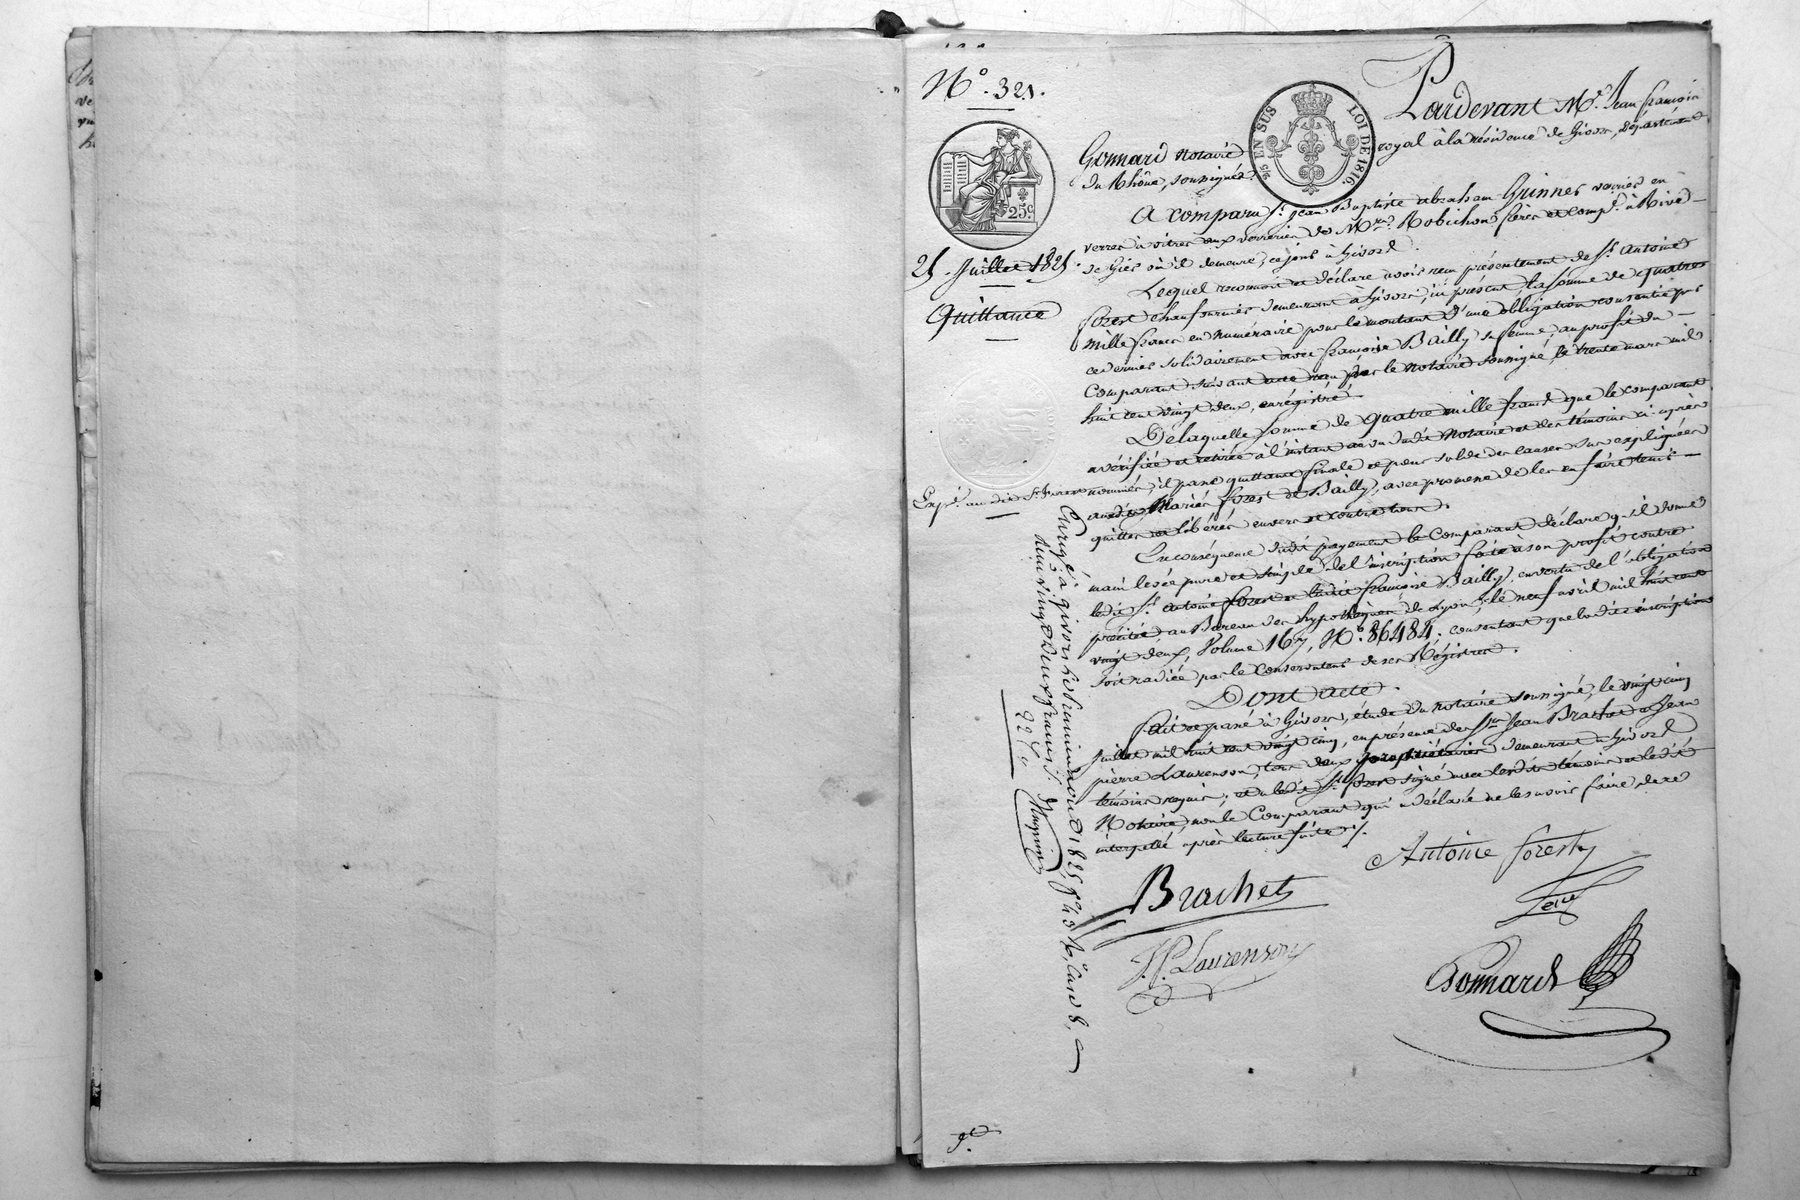 N.° 321.
25 Juillet 1825.
Quittance
25.c
5/10 EN SUS LOI DE 1816.
Pardevant M.e Jean françois
Gonnard notaire royal à la résidence de Givors, Département
du Rhône, soussigné
A comparu S.r jean Baptiste abraham Grinner ouvrier en
verres à vitres aux verreries de M.rs Robichon frères et comp.e à Rive
de Gier où il demeure, ce jour à Givord.
Lequel reconnoit et déclare avoir reçu présentement de S.r Antoine
forest chaufournier demeurant à Givors, ici présent, la somme de quatre
mille francs en numéraire pour le montant d'une obligation consentie par
ce dernier solidairement avec françoise Bailly sa femme, au profit du
Comparant suivant acte reçu par le notaire soussigné, le trente mars mil
huit cent vingt deux, enrégistré.
De laquelle somme de quatre mille francs que le comparant
a vérifiée et retirée à l'instant au vu dudit Notaire et des témoins ci-après
nommés, il passe quittance finale et pour solde des causes sus expliquées
auxdits Mariés forest et Bailly, avec promesse de les en faire tenir
quittes et libérés envers et contre tous.
En conséquence dudit payement le Comparant déclare qu'il donne
main levée pure et simple de l'inscription faite à son profit contre
ledit S.r Antoine forest et ladite françoise Bailly, en vertu de l'obligation
précitée, au Bureau des hypothèques de Lyon, le neuf avril mil huit cent
vingt deux, Volume 167, N.° 86484; consentant que ladite inscription
soit radiée par le Conservateur de ses Régistres.
Dont acte.
Fait et passé à Givors, étude du notaire soussigné, le vingt cinq
juillet mil huit cent vingt cinq, en présence de S.rs Jean Brachet et Jean
pierre Laurenson, tous deux propriétaires demeurant à Givord
témoins requis; et a ledit S.r forest signé avec lesdits témoins et ledit
Notaire, non le Comparant qui a déclaré ne le savoir faire de ce
interpellé après lecture faite ./.
Expé. audit S.r forest
Enrégé à givors le 1825, f.° 43 v.° case 8,
reçu vingt deux francs
22 f.
Antoine forest
Brachet
J.P. Laurenson
Gonnard